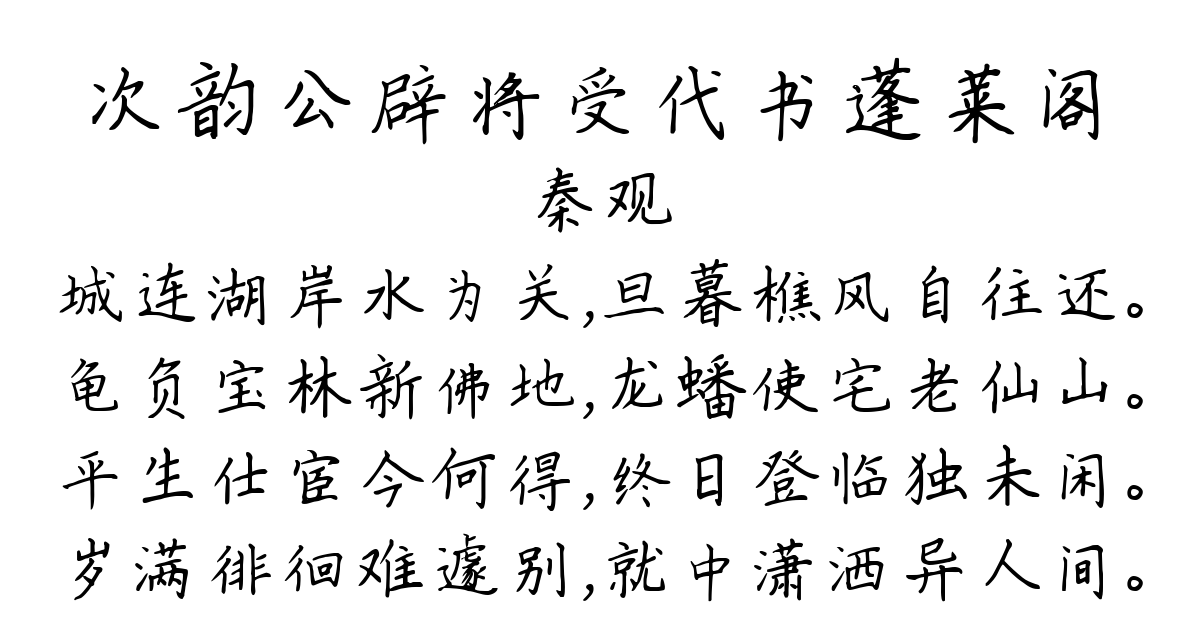 次韵公辟将受代书蓬莱阁
秦观
城连湖岸水为关,旦暮樵风自往还。
龟负宝林新佛地,龙蟠使宅老仙山。
平生仕宦今何得,终日登临独未闲。
岁满徘徊难遽别,就中潇洒异人间。